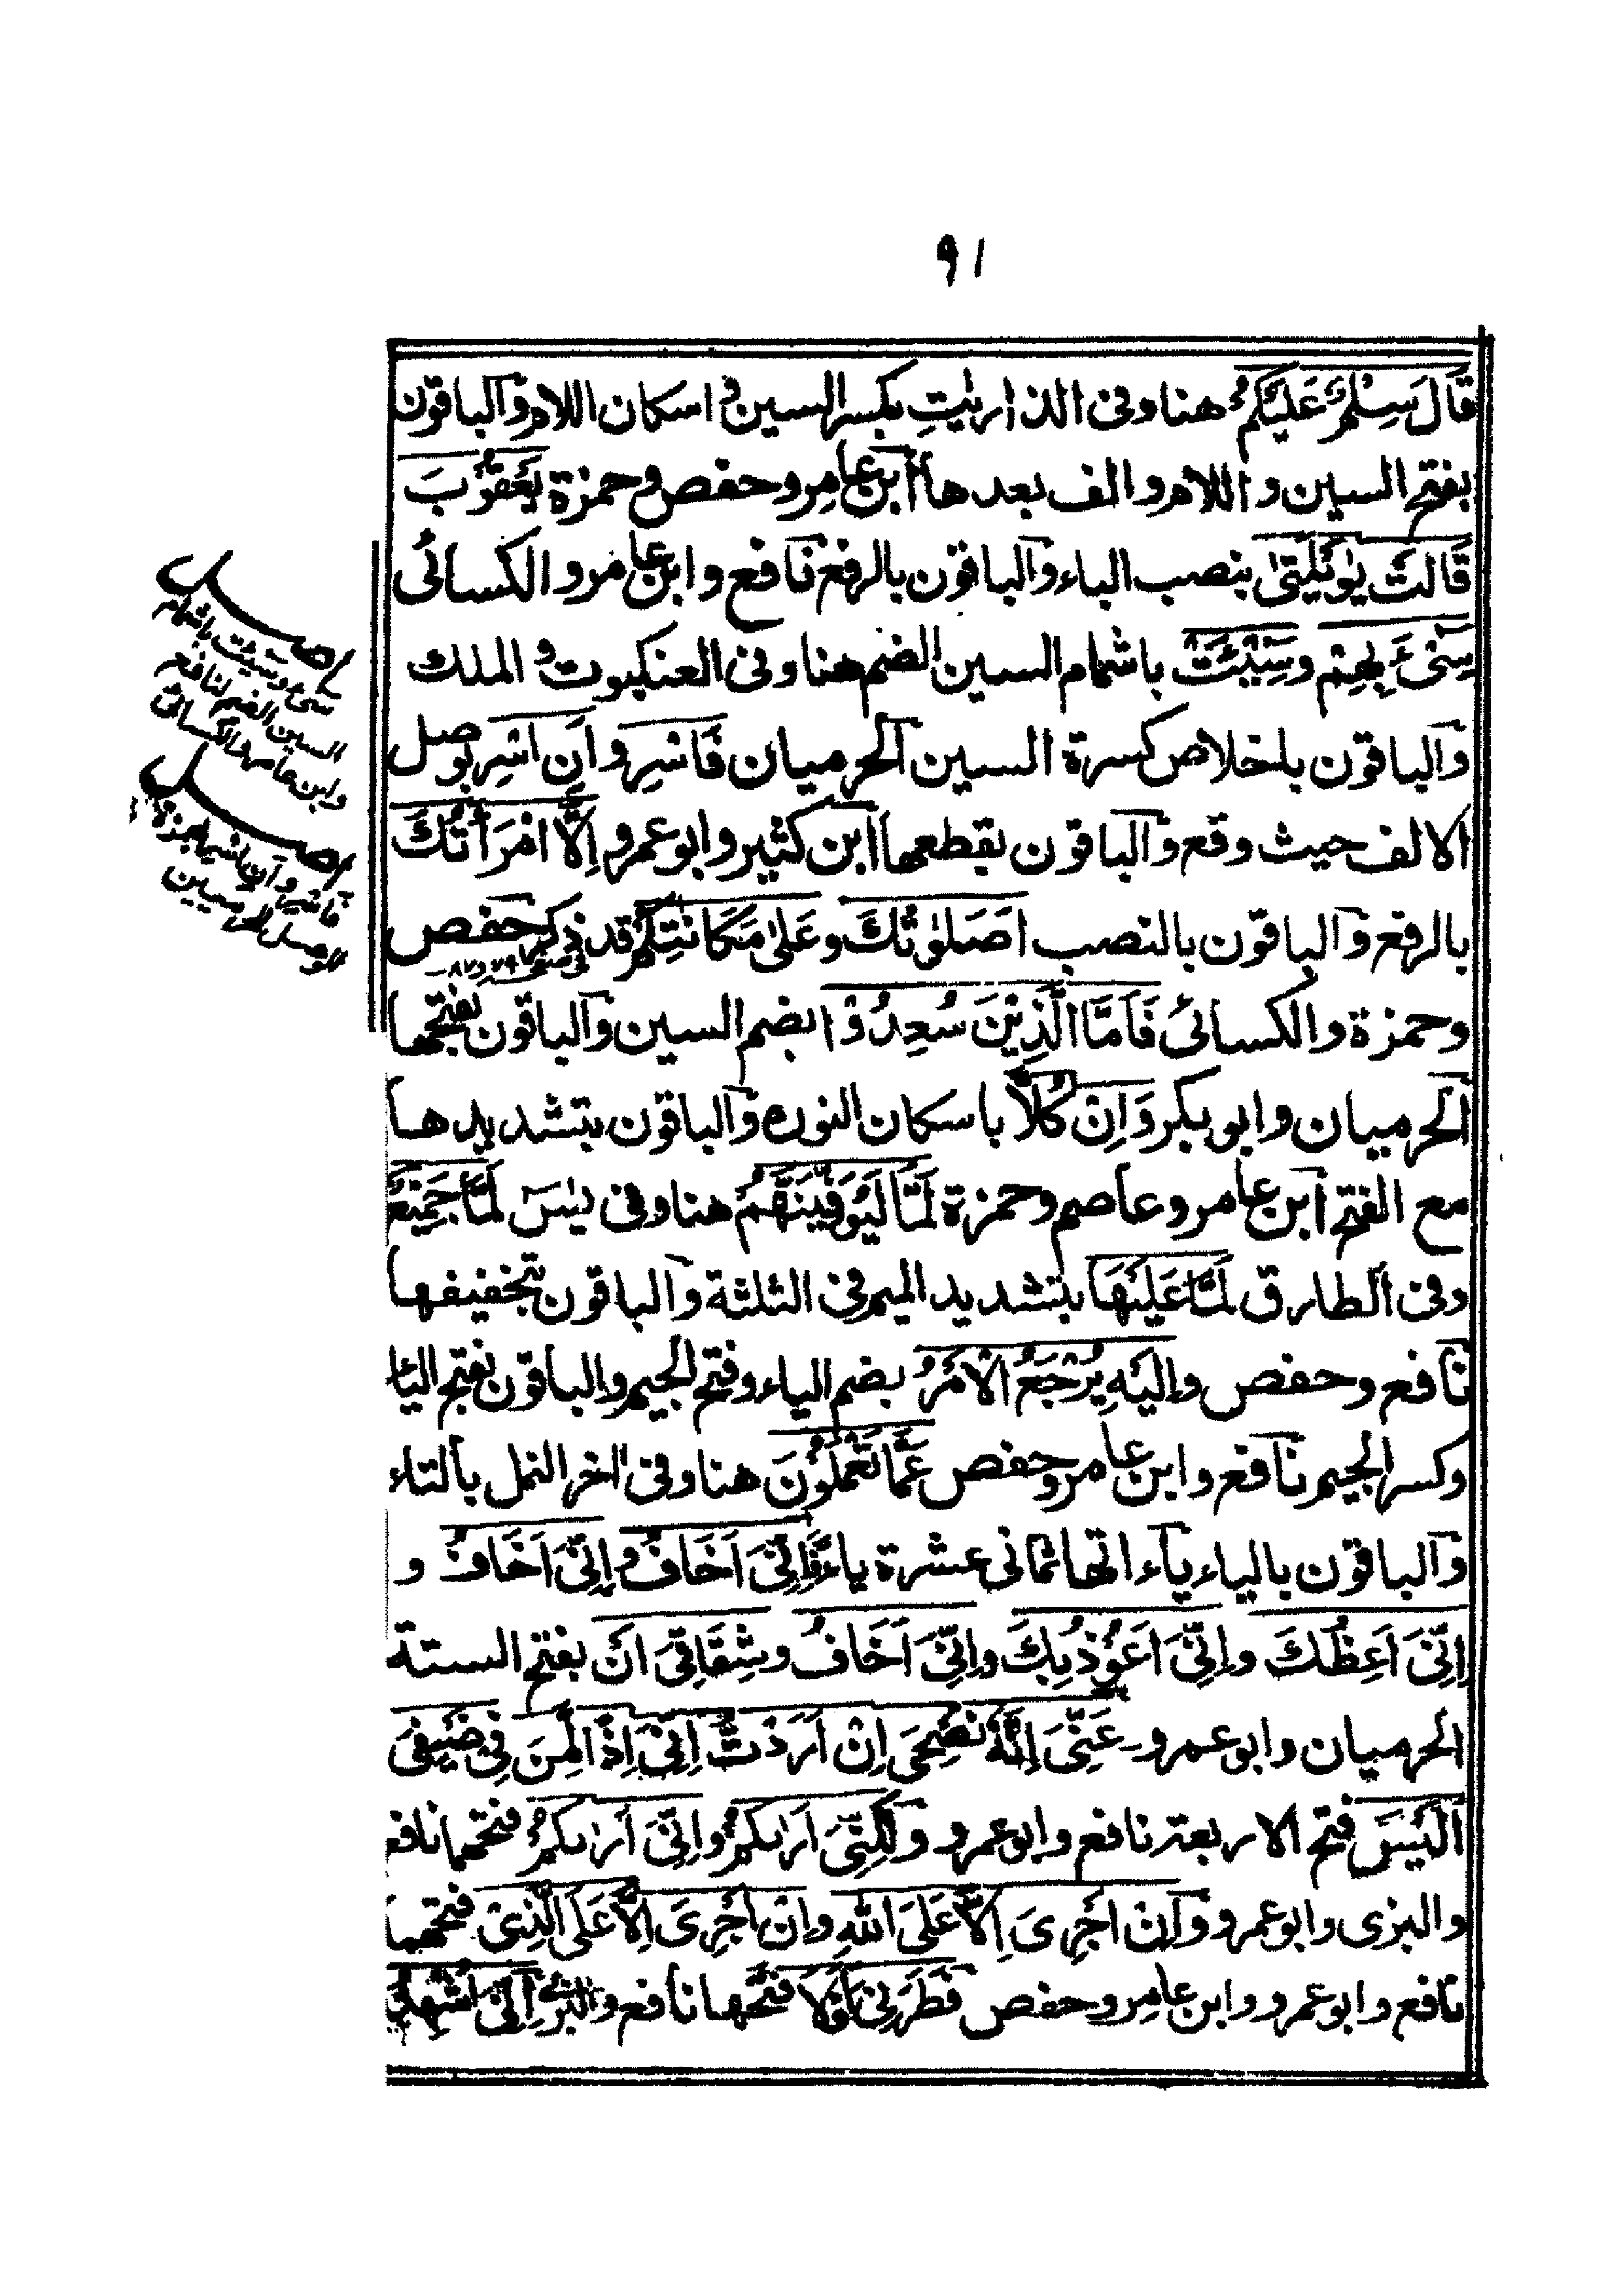 ٩١
قَالَ سِلْمٌ عَلَيْكُمْ هنا وفى الذاريٰت بكسر السين و اسكان اللام والباقون
بفتح السين و اللام و الف بعدها ابن عامر و حفص و حمزة يَعْقُوْبَ
قَالَتْ يٰوَيْلَتٰى بنصب الباء والباقون بالرفع نافع و ابن عامر و الكسائى
سِىْٓءَ بِهِمْ و سِيْئَتْ باشمام السين الضم هنا و فى العنكبوت و الملك
والباقون باخلاص كسرة السين الحرميان فَاسْرِ و اَنِ اسْرِ بوصل
الالف حيث وقع والباقون بقطعها ابن كثير و ابو عمرو اِلَّا امْرَاَتُكَ
بالرفع والباقون بالنصب اَصَلٰوتُكَ و عَلٰى مَكَانَتِكُمْ قد ذكر حفص
وحمزة والكسائى فَاَمَّا الَّذِيْنَ سُعِدُوْا بضم السين والباقون بفتحها
الحرميان و ابو بكر وَاِنْ كُلًّا باسكان النون والباقون بتشديدها
مع الفتح ابن عامر و عاصم و حمزة لَمَّا لَيُوَفِّيَنَّهُمْ هنا و فى يٰسٓ لَمَّا جَمِيْعٌ
وفى الطارق لَمَّا عَلَيْهَا بتشديد الميم فى الثلثة والباقون بتخفيفها
نافع و حفص و اِلَيْهِ يُرْجَعُ الْاَمْرُ بضم الياء و فتح الجيم والباقون بفتح الياء
وكسر الجيم نافع و ابن عامر و حفص عَمَّا تَعْمَلُوْنَ هنا و فى اٰخر النمل بالتاء
والباقون بالياء ياءاتها ثمانى عشرة ياء فَاِنِّىَ اَخَافُ و اِنِّىَ اَخَافُ و
اِنِّىَ اَعِظُكَ و اِنِّىَ اَعُوْذُ بِكَ و اِنِّىَ اَخَافُ و شِقَاقِىَ اَنْ بفتح الستة
الحرميان و ابو عمرو عَنِّىَ اِنَّهٗ نُصْحِىَ اِنْ اَرَدْتُّ اِنِّىَ اِذًا لَّمِنَ فِىْ ضَيْفِىَ
اَلَيْسَ فتح الاربعة نافع و ابو عمرو وَلٰكِنِّىَ اَرٰىكُمْ و اِنِّىَ اَرٰىكُمْ فتحهما نافع
والبزى و ابو عمرو وَاِنْ اَجْرِىَ اِلَّا عَلَى اللّٰهِ و اِنْ اَجْرِىَ اِلَّا عَلَى الَّذِىْ فتحهما
نافع و ابو عمرو و ابن عامر و حفص فَطَرَنِىَ اَفَلَا فتحها نافع والبزى اِنِّىَ اُشْهِدُ
سىء و سيئت باشمام
السين الضم لنافع
وابن عامر والكسائى
فاسر و ان اسر بهمزة
الوصل للحرميين